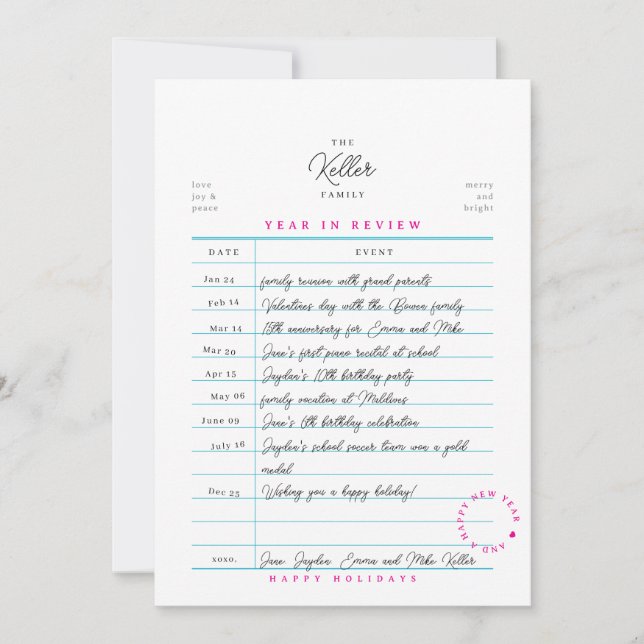 THE
Keller
FAMILY
love
joy &
peace
merry
and
bright
YEAR IN REVIEW
DATE EVENT
Jan 24 family reunion with grand parents
Feb 14 Valentines day with the Bowen family
Mar 14 15th anniversary for Emma and Mike
Mar 20 Jane's first piano recital at school
Apr 15 Jaydan's 10th birthday party
May 06 family vocation at Maldives
June 09 Jane's 6th birthday celebration
July 16 Jayden's school soccer team won a gold
medal
Dec 25 Wishing you a happy holiday!
AND A HAPPY NEW YEAR
xoxo, Jane Jayden, Emma and Mike Keller
HAPPY HOLIDAYS